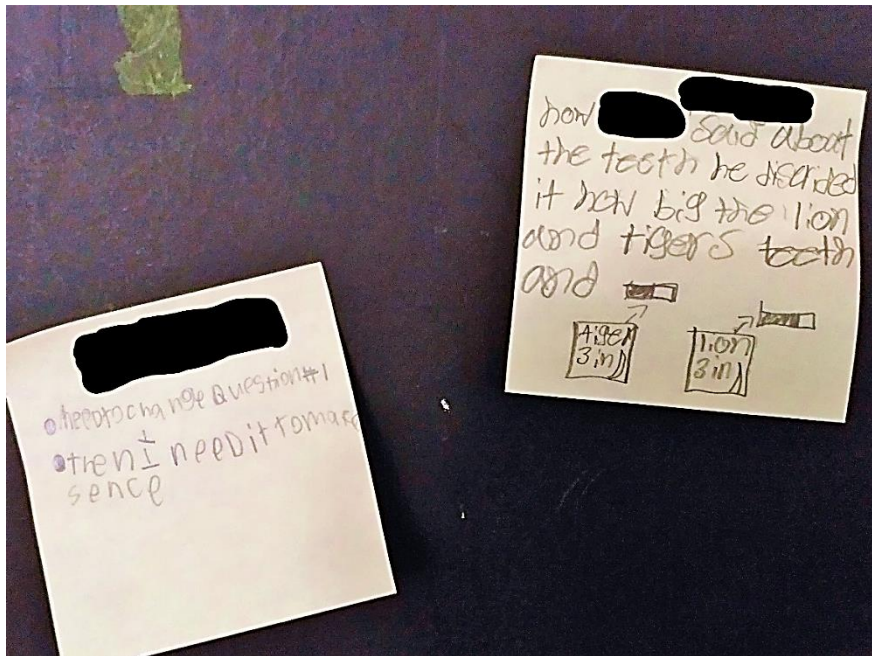 how said about
the teeth he discrided
it how big the lion
and tigers teeth
and
tiger
3 in
lion
3 in
need to change Question #1
then I need it to make
sence